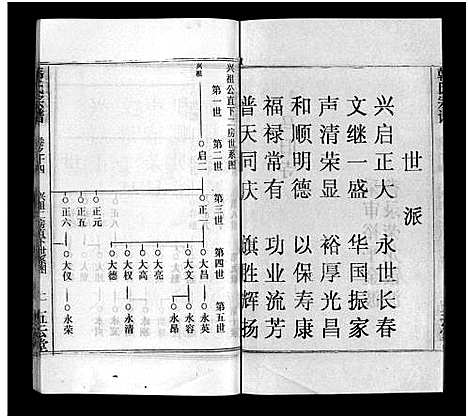 世派
兴启正大 永世长春
文继一盛 华国振家
声清荣显 裕厚光昌
和顺明德 以保寿康
福禄常有 功业流芳
普天同庆 旗胜辉扬
兴祖公直下二房世系图
第一世
第二世
第三世
第四世
第五世
兴祖
启二
正一
正元
正五
正六
大昌
大文
大亮
大高
大权
大德
大仪
大仪
永英
永容
永昂
永清
永荣
五云堂